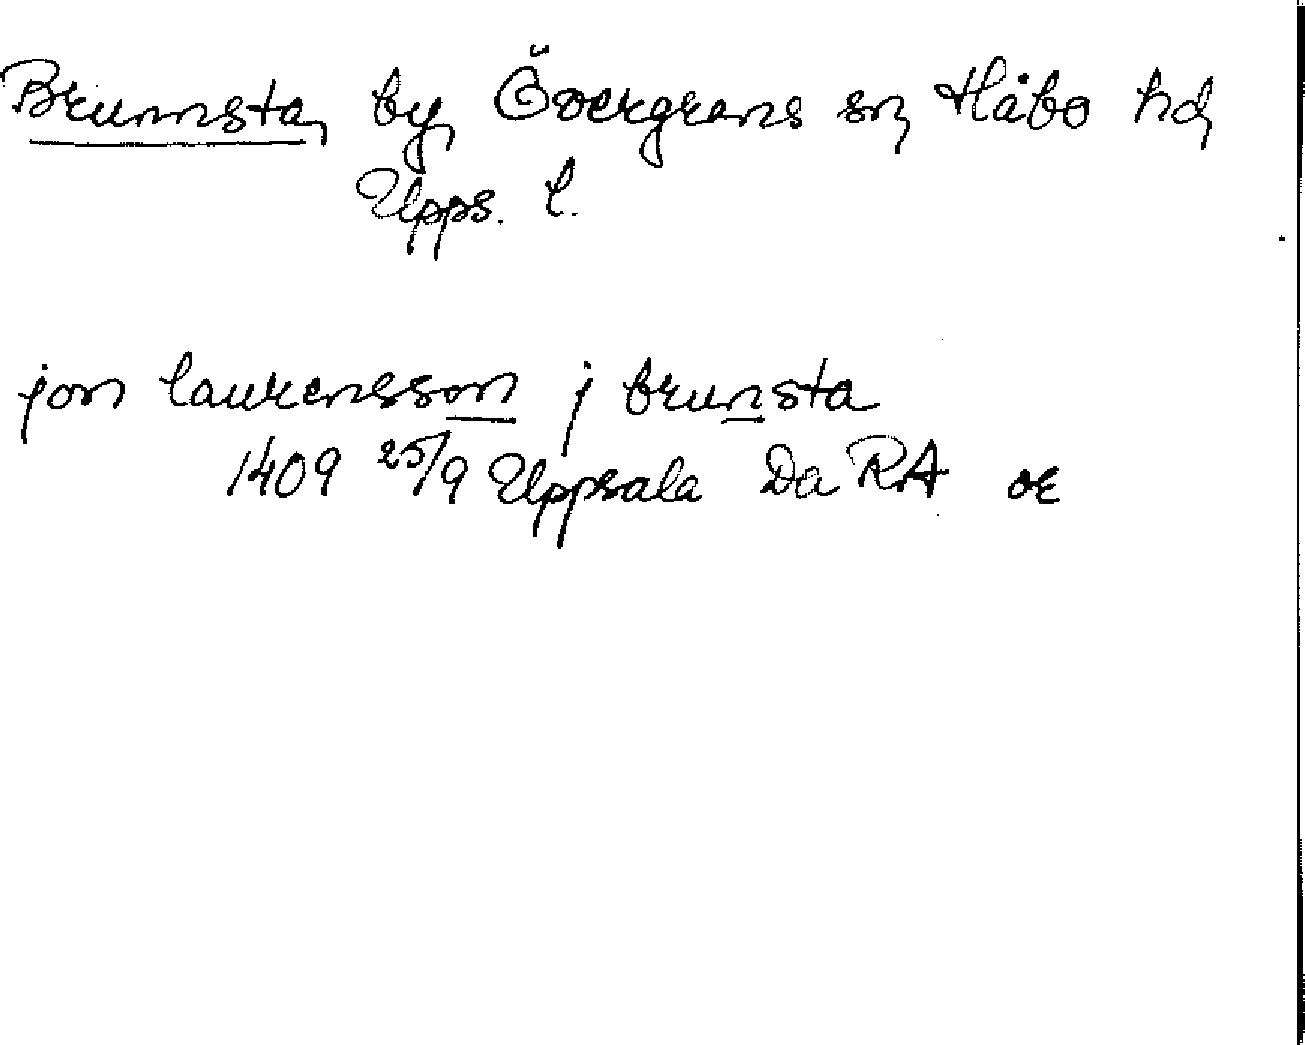 Brunnsta, by, Övergrans sn, Håbo hd,
Upps. l.
jon laurensson j brunsta
1409 25/9 Uppsala Da RA or